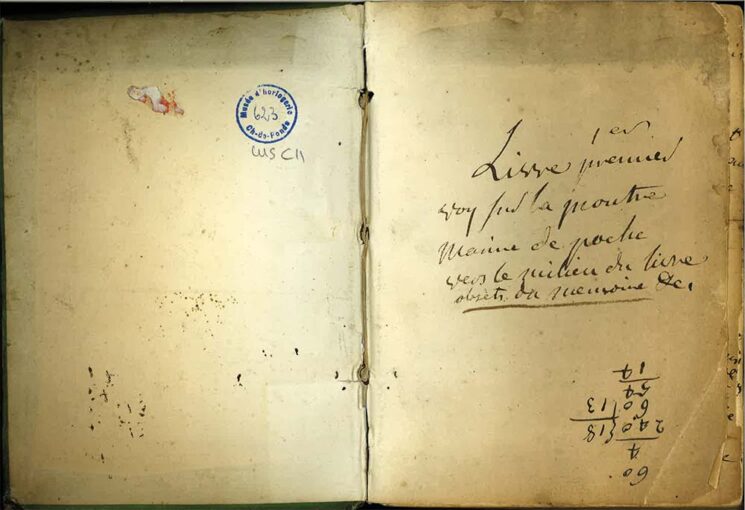 Musée d'horlogerie
623
Ch-de-Fonds
1er
Livre premier
voy sur la montre
Marine de poche
vers le milieu du livre
objets du memoire &c.
60
4
240 | 318
60 | 13
54
14